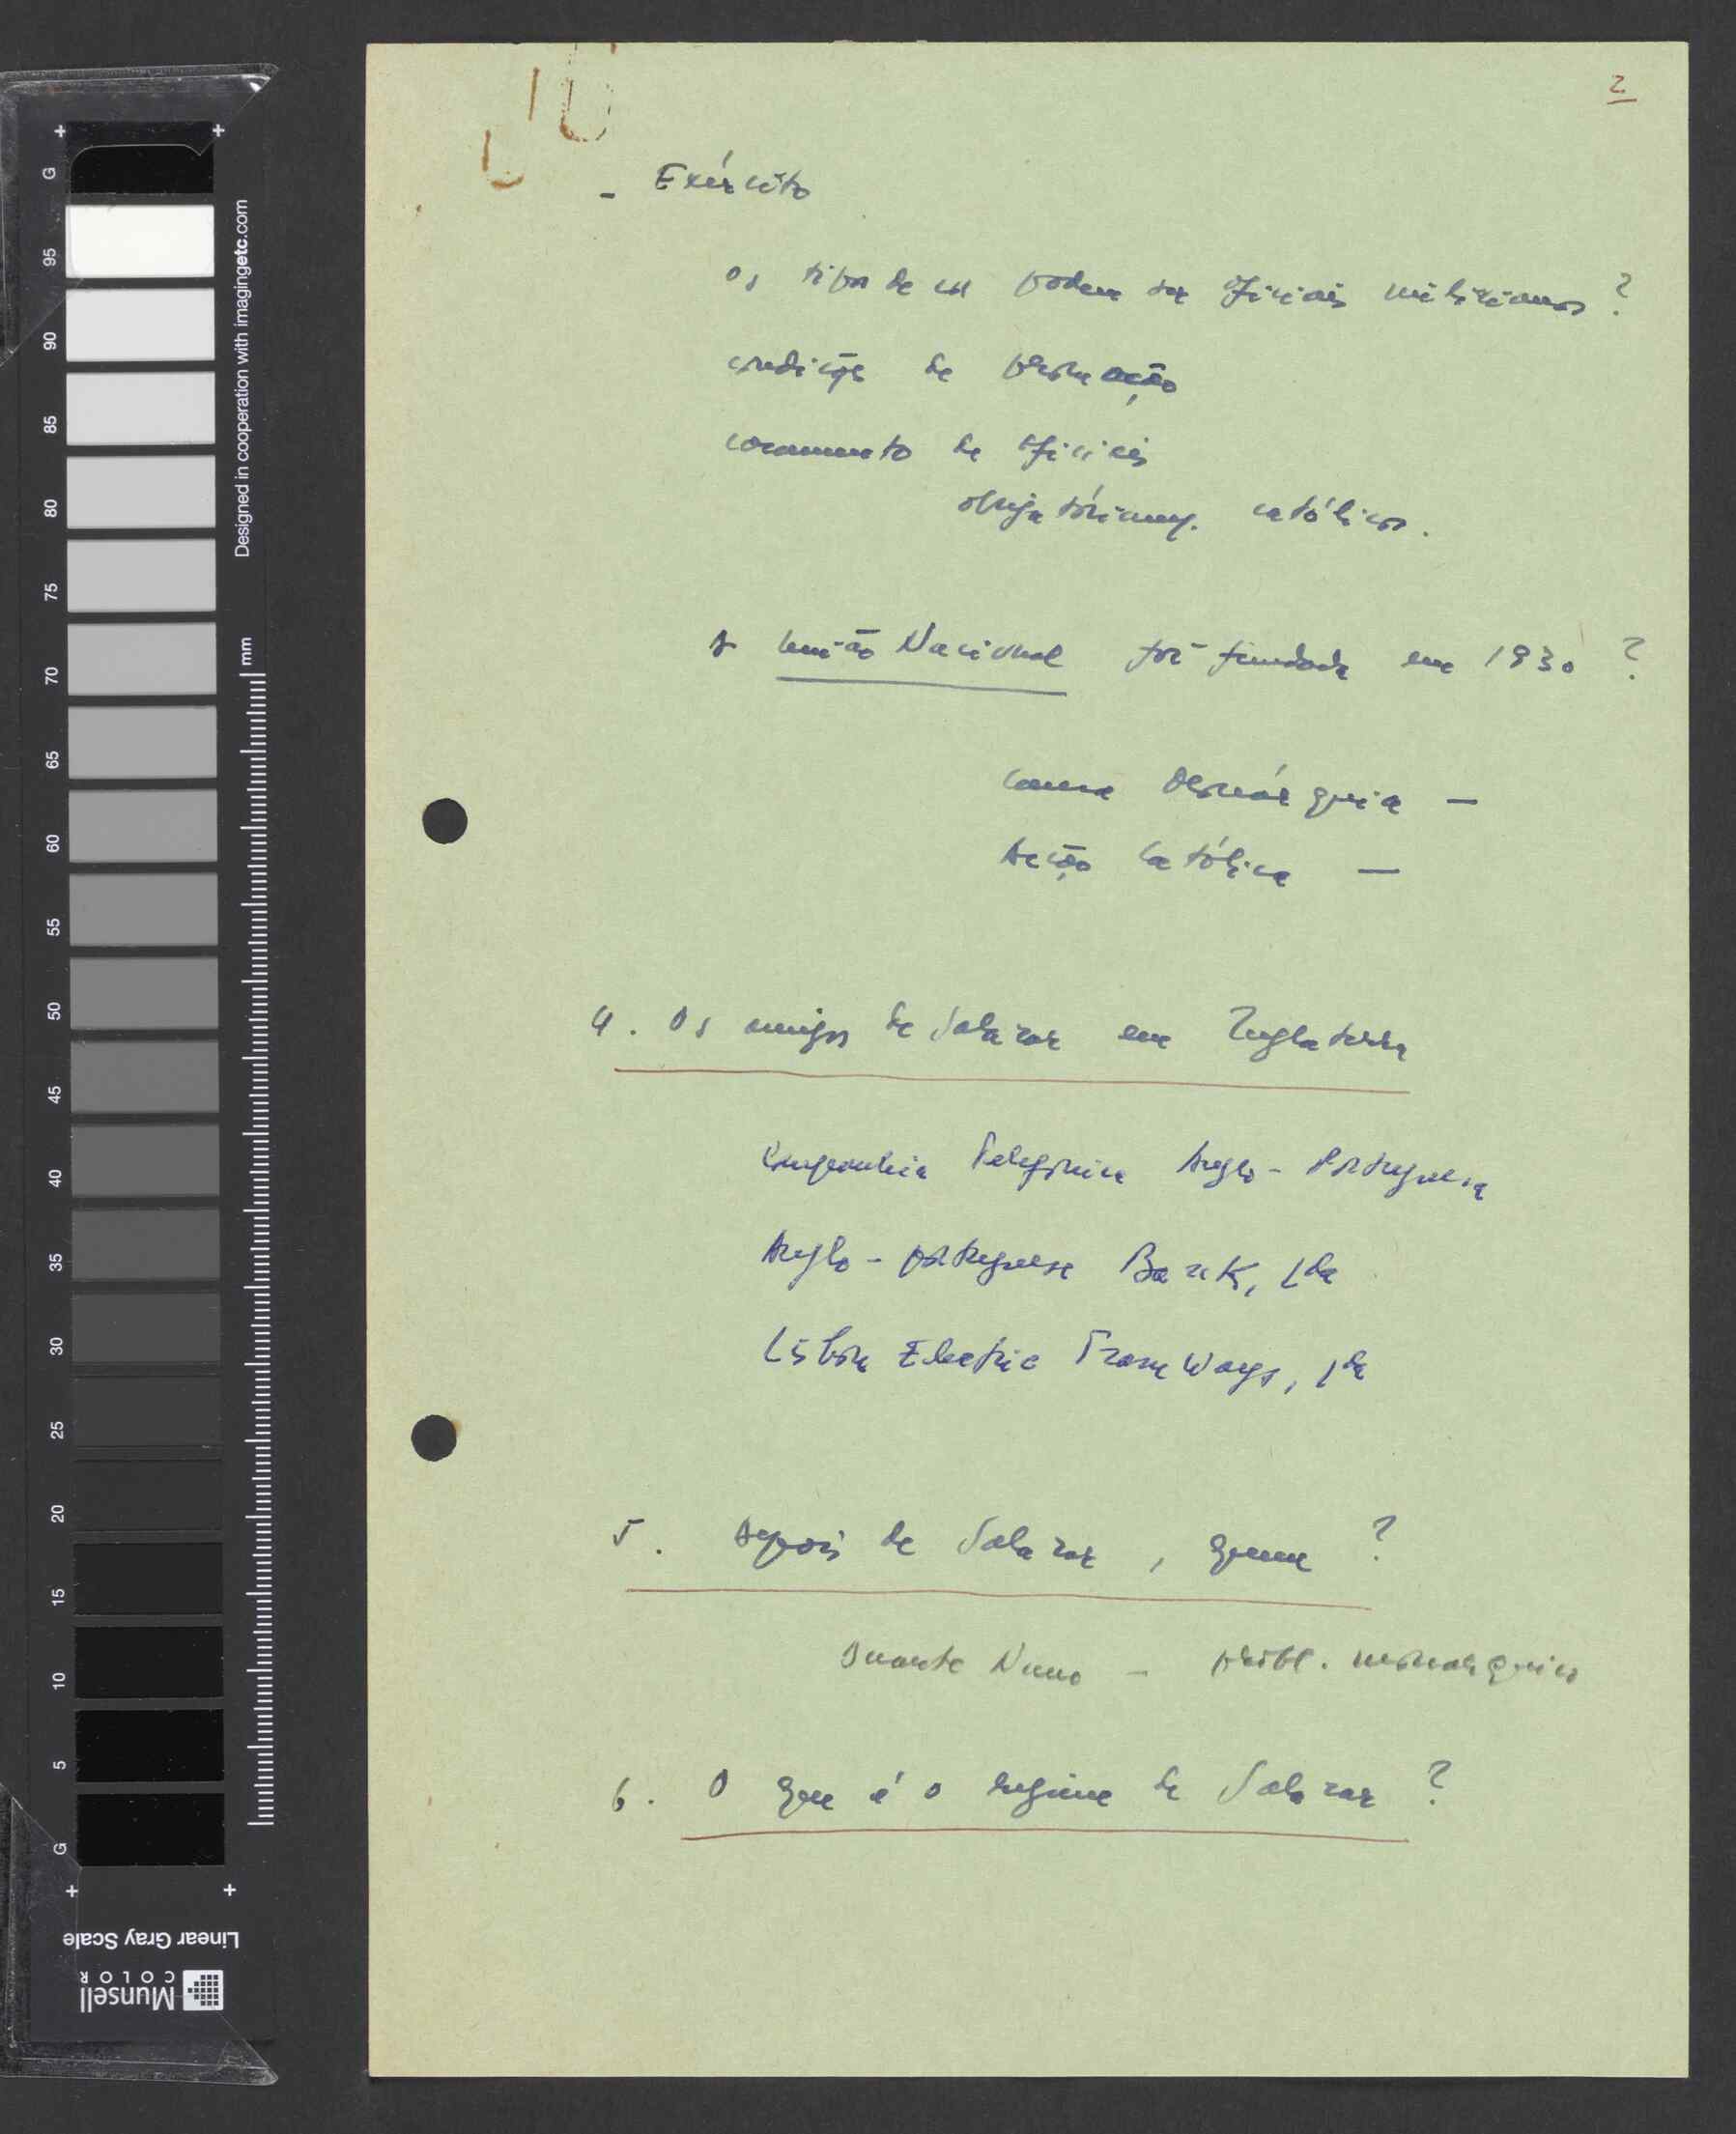 2
- Exército
os tipos de cor podem ser oficiais milicianos ?
condições de promoção
casamento de oficiais
obrigatóriam. católicos.
A União Nacional foi fundada em 1930 ?
Causa Monárquia -
Acção Católica -
4. Os amigos de Salazar em Inglaterra
Companhia Telefónica Anglo-Portuguesa
Anglo-portuguese Bank, Lda
Lisbon Electric TramWays, Lda
5. Depois de Salazar, quem ?
Duarte Nuno - probl. monarquico
6. O que é o regime de Salazar ?
G
95
90
85
80
75
70
65
60
55
50
45
40
35
30
25
20
15
10
5
G
mm
Designed in cooperation with imagingetc.com
Linear Gray Scale
Munsell
COLOR